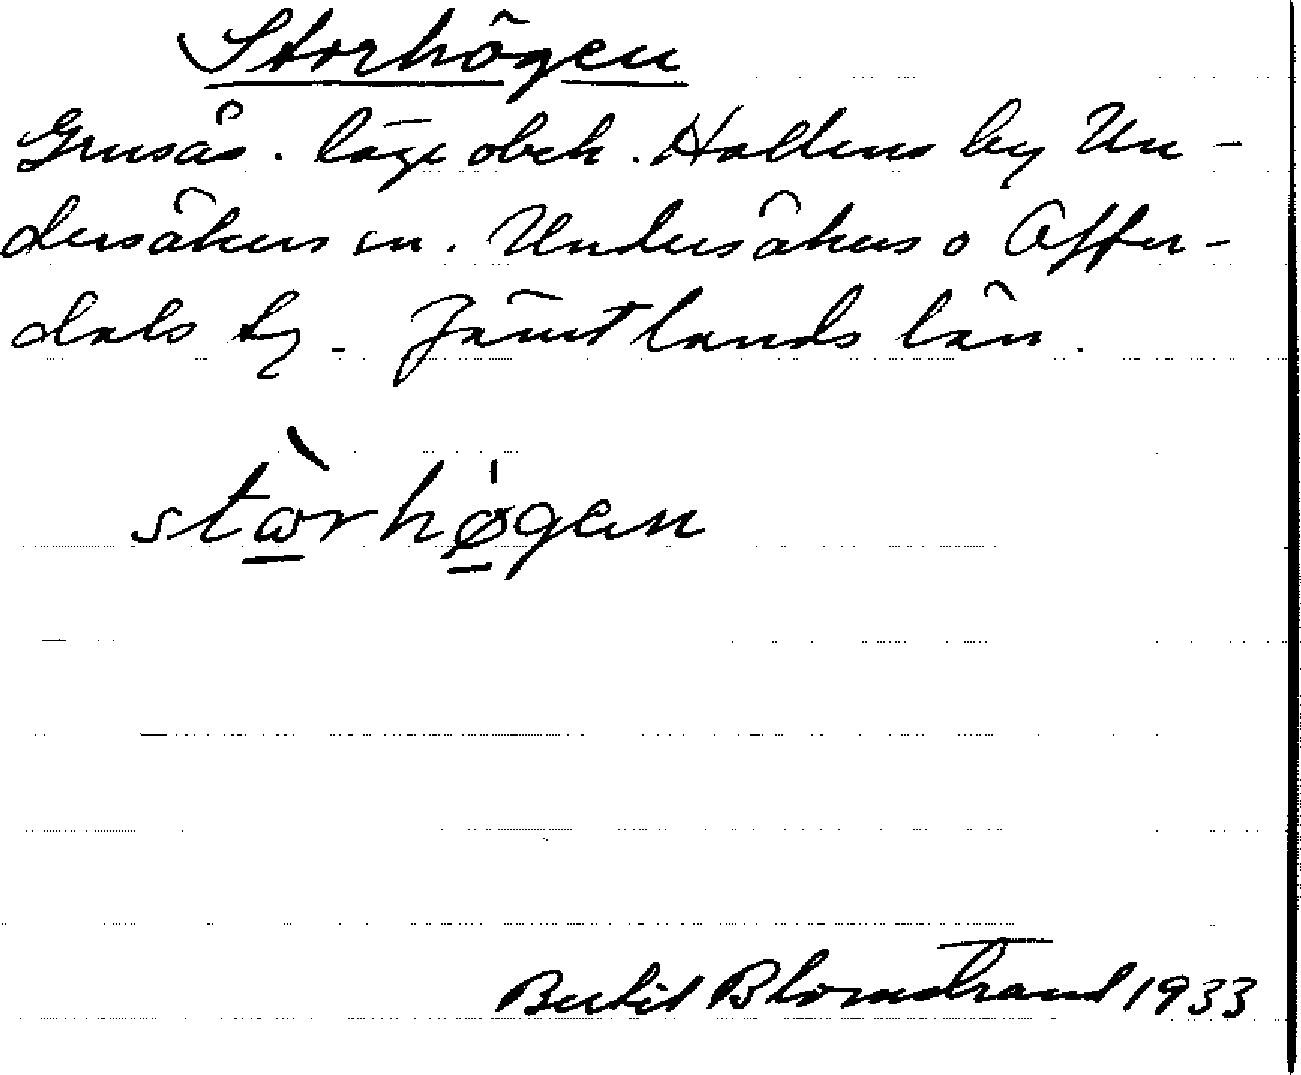 Storhögen
Grusås. läge obek. Hallens by Un-
dersåkers sn. Undersåkers o Offer-
dals tg. Jämtlands län.
stòrhø̱gen
Bertil Blomstrand 1933